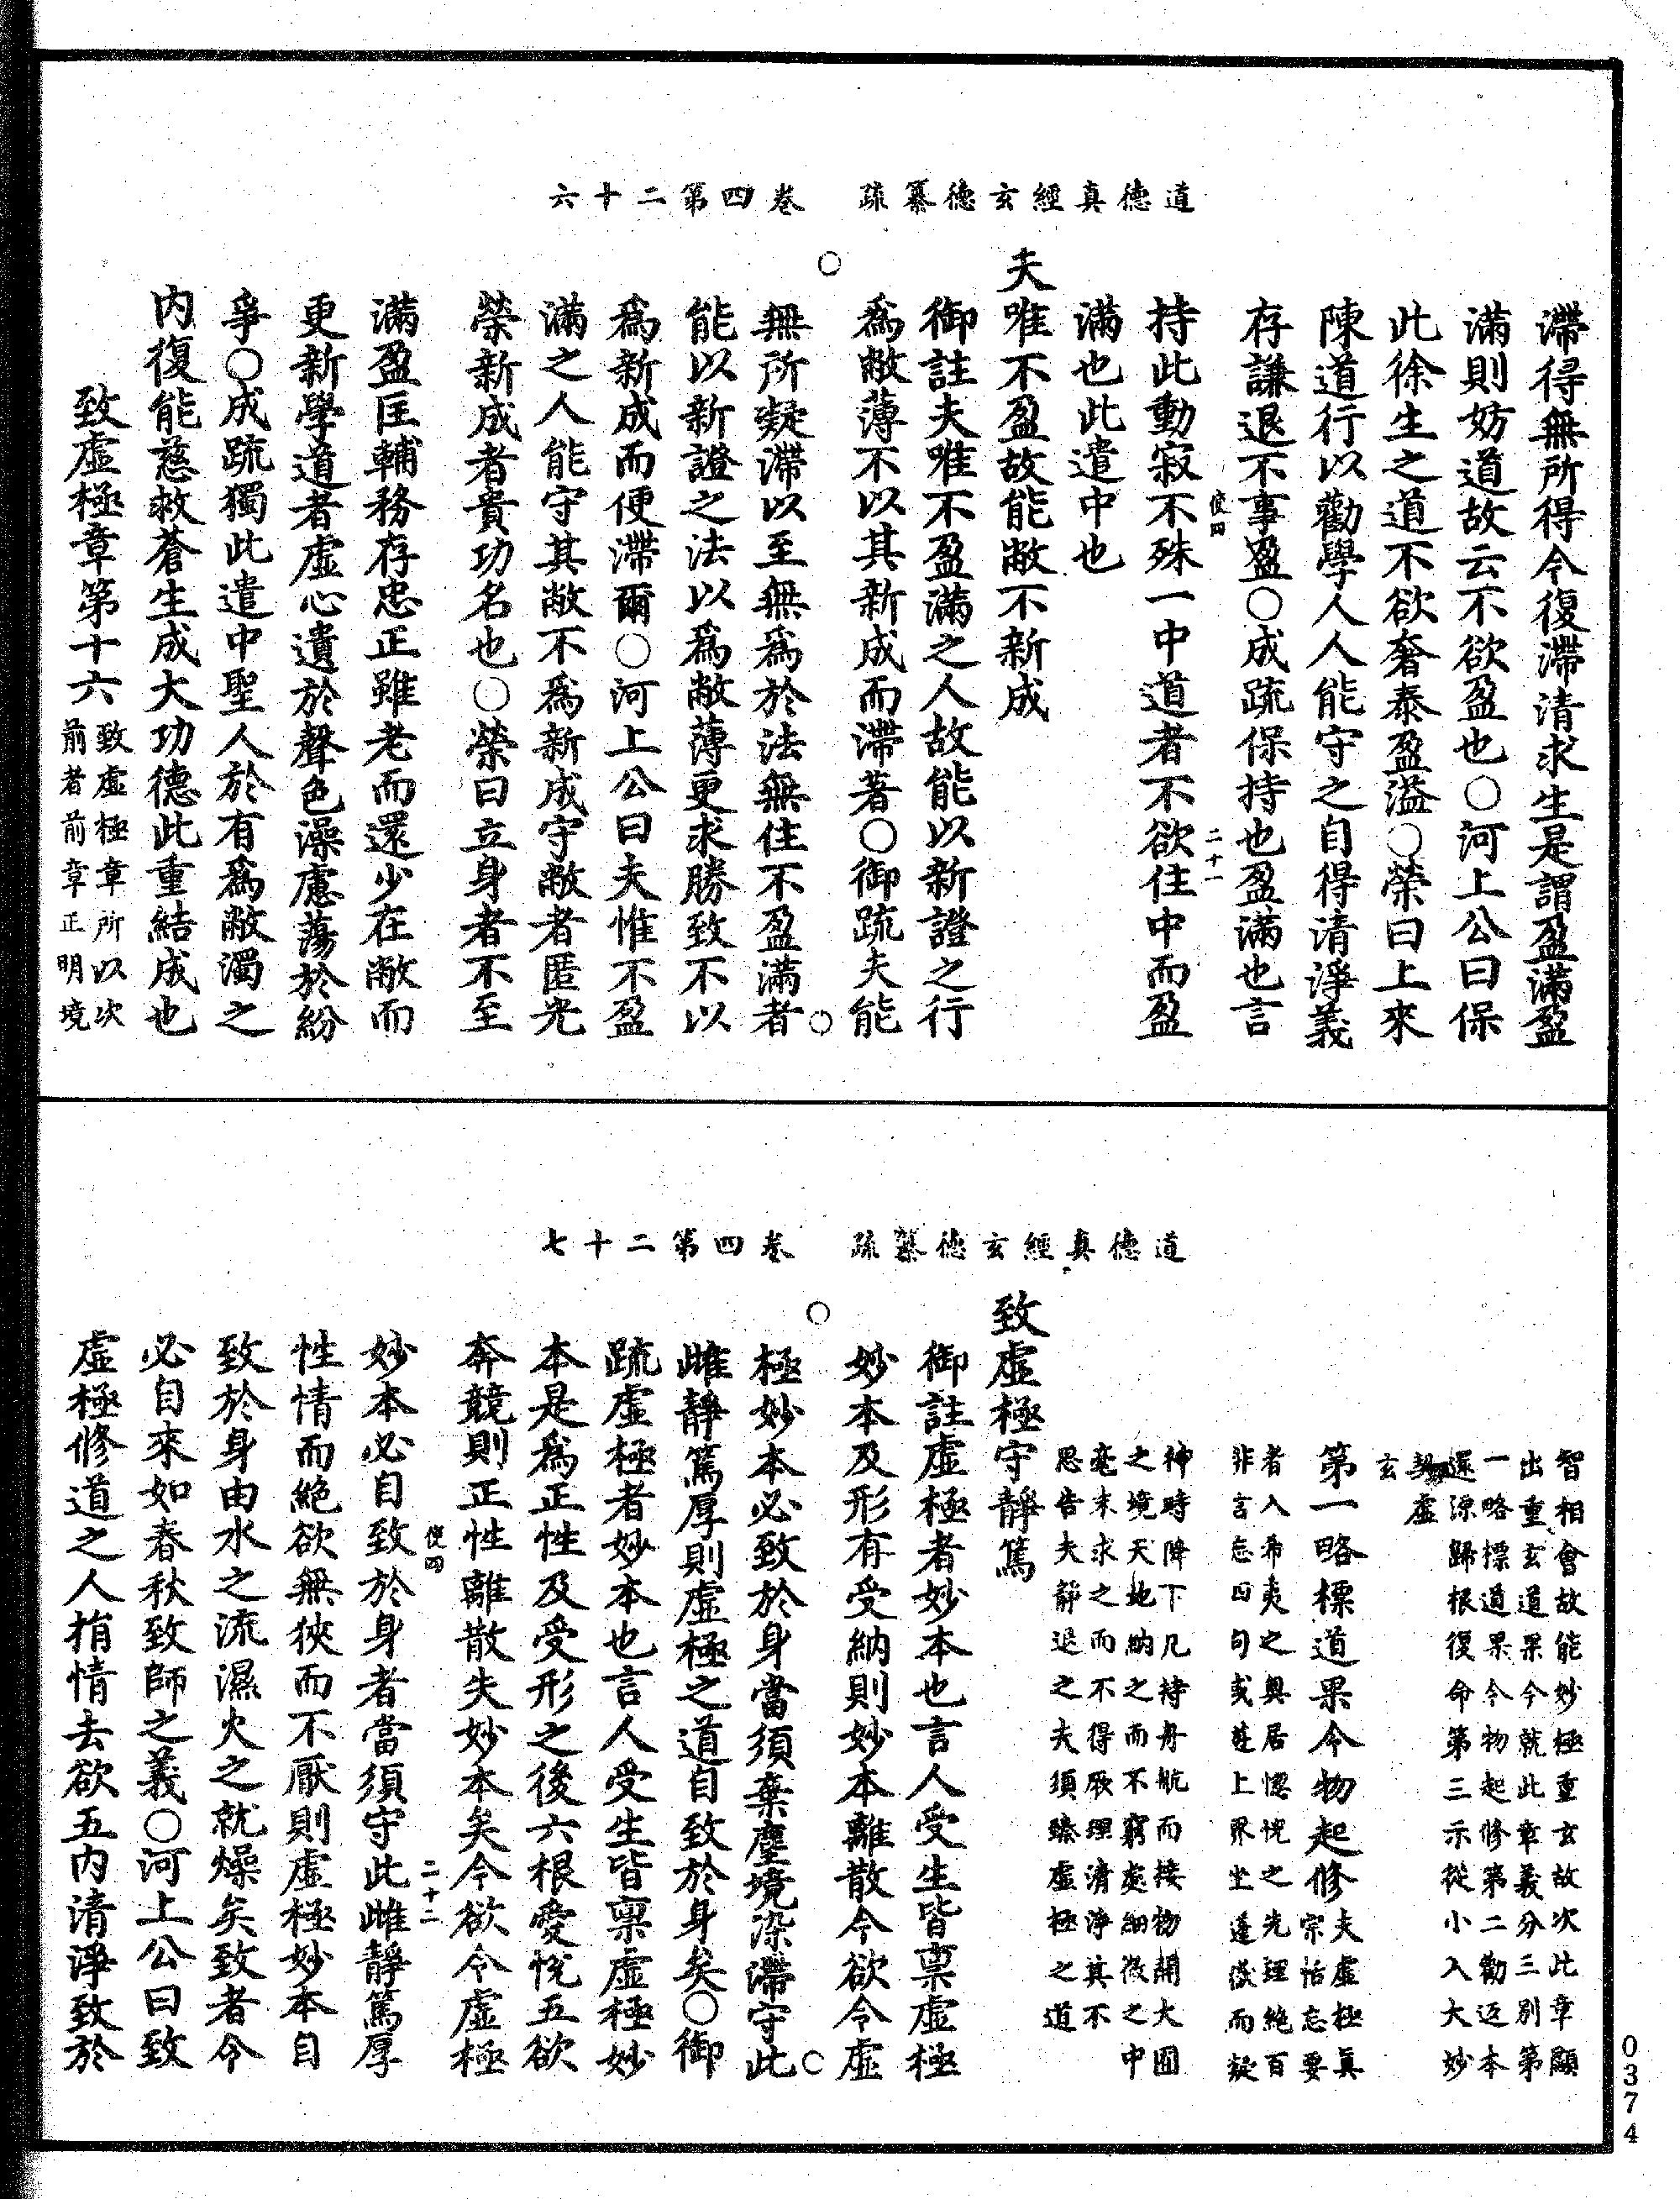 道德真經玄德纂疏　卷四第二十六
滯得無所得今復滯清求生是謂盈滿盈
滿則妨道故云不欲盈也○河上公曰保
此徐生之道不欲奢泰盈溢○榮曰上來
陳道行以勸學人人能守之自得清淨義
存謙退不事盈○成疏保持也盈滿也言
使四　二十一
持此動寂不殊一中道者不欲住中而盈
滿也此遣中也
夫唯不盈故能敝不新成
御註夫唯不盈滿之人故能以新證之行
為敝薄不以其新成而滯著○御疏夫能
無所凝滯以至無為於法無住不盈滿者
能以新證之法以為敝薄更求勝致不以
為新成而便滯爾○河上公曰夫惟不盈
滿之人能守其敝不為新成守敝者匿光
榮新成者貴功名也○榮曰立身者不至
滿盈匡輔務存忠正雖老而還少在敝而
更新學道者虛心遺於聲色澡慮蕩於紛
爭○成疏獨此遣中聖人於有為敝濁之
內復能慈救蒼生成大功德此重結成也
致虛極章第十六致虛極章所以次
前者前章正明境
道德真經玄德纂疏　卷四第二十七
智相會故能妙極重玄故次此章顯
出重玄道果今就此章義分三別第
一略標道果今物起修第二勸迈本
還源歸根復命第三示從小入大妙
契虛
玄
第一略標道果今物起修夫虛極真
宗恬忘要
者入希夷之奧居惚恍之先理絕百
非言忘四句或莚上界坐逢微而凝
神時降下凡持舟航而接物開大囿
之境天地納之而不窮處細微之中
毫末求之而不得厥理清淨其不
思告夫靜退之夫須臻虛極之道
致虛極守靜篤
御註虛極者妙本也言人受生皆稟虛極
妙本及形有受納則妙本離散今欲令虛
極妙本必致於身當須棄塵境染滯守此
雌靜篤厚則虛極之道自致於身矣○御
疏虛極者妙本也言人受生皆稟虛極妙
本是為正性及受形之後六根愛悅五欲
奔競則正性離散失妙本矣今欲令虛極
使四　二十二
妙本必自致於身者當須守此雌靜篤厚
性情而絕欲無狹而不厭則虛極妙本自
致於身由水之流濕火之就燥矣致者令
必自來如春秋致師之義○河上公曰致
虛極修道之人捐情去欲五內清淨致於
0374